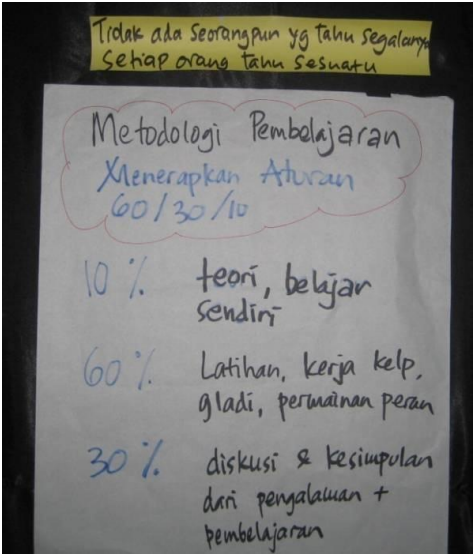 Tidak ada seorangpun yg tahu segalanya
Setiap orang tahu sesuatu
Metodologi Pembelajaran
Menerapkan Aturan
60/30/10
10 % teori, belajar
sendiri
60 % Latihan, kerja kelp,
gladi, permainan peran
30 % diskusi & kesimpulan
dari pengalaman +
pembelajaran